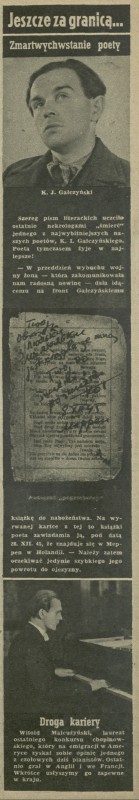 Jeszcze za granicą...
Zmartwychwstanie poety
K. J. Gałczyński
Szereg pism literackich uczciło
ostatnio nekrologami „śmierć”
jednego z najwybitniejszych na-
szych poetów, K. I. Gałczyńskiego.
Poeta tymczasem żyje w naj-
lepsze!
— W przeddzień wybuchu woj-
ny żona — która zakomunikowała
nam radosną nowinę — dała idą-
cemu na front Gałczyńskiemu
książkę do nabożeństwa. Na wy-
rwanej kartce z tej to książki
poeta zawiadamia ją, pod datą
29. XII. 45, że znajduje się w Mep-
pen w Holandii. — Należy zatem
oczekiwać jedynie szybkiego jego
powrotu do ojczyzny.
Droga kariery
Witold Małcużyński, laureat
ostatniego konkursu chopinow-
skiego, który na emigracji w Ame-
ryce zyskał sobie opinię jednego
z czołowych dziś pianistów. Ostat-
nio grał w Anglii i we Francji.
Wkrótce usłyszymy go zapewne
w kraju.